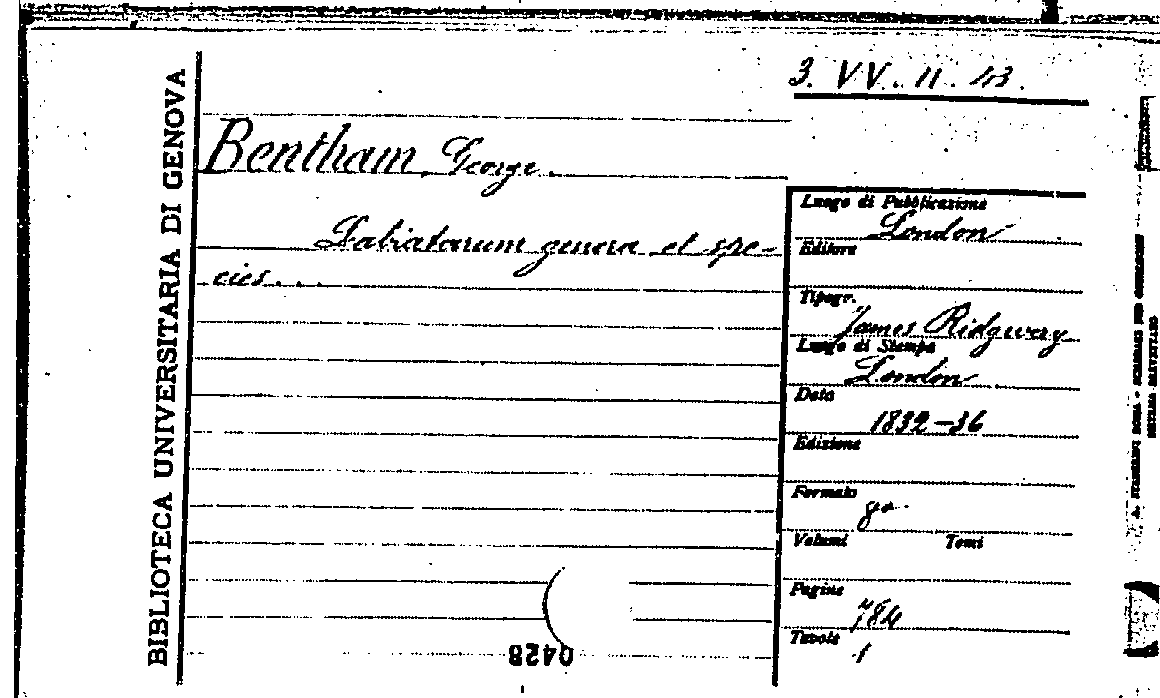 3. VV. 11. 43.
BIBLIOTECA UNIVERSITARIA DI GENOVA
Bentham George.
Labiatarum genera et spe-
cies...
Luogo di Pubblicazione
London
Editore
Tipogr.
James Ridgway
Luogo di Stampa
London
Data
1832-36
Edizione
Formato
8°
Volumi Tomi
Pagine
784
Tavole
1
0428